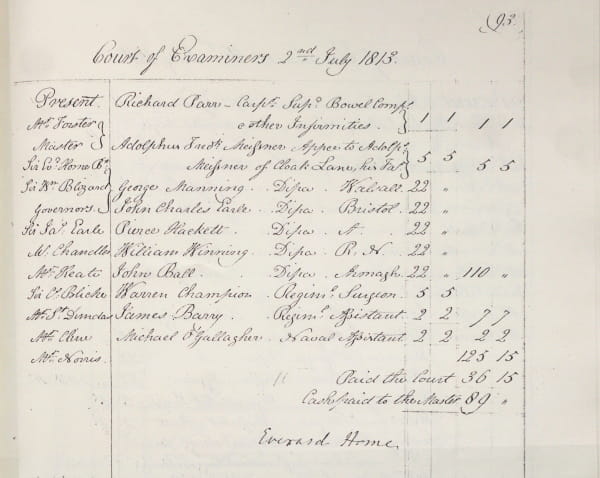 93.
Court of Examiners 2nd July 1813.
Present. Richard Parr - Carpr. Supd. Bowel Compt.
Mr. Forster & other Infirmities. 1 1 1 1
Master Adolphus Fredk. Meißner Appe. to Adolps.
Sir Evd. Home Bt. Meißner of Cloak Lane, his Far. 5 5 5 5
Sir Wm. Blizard George Manning . . Dipa . Walsall. 22 "
Governors. John Charles Earle . Dipa . Bristol. 22 "
Sir Jas. Earle Pierce Hackett. . Dipa . A. 22 "
Mr. Chandler William Winning . Dipa . R. N. 22 "
Mr. Keate John Ball. . Dipa . Armagh. 22 " 110 "
Sir Cs. Blicke Warren Champion . Regiml. Surgeon. 5 5
Mr. Dundas James Barry. . Regiml. Aßistant. 2 2 7 7
Mr. Cline Michael O'Gallagher. Naval Aßistant 2 2 2 2
Mr. Norris. 125 15
Paid the Court 36 15
Cash paid to the Master 89 "
Everard Home.